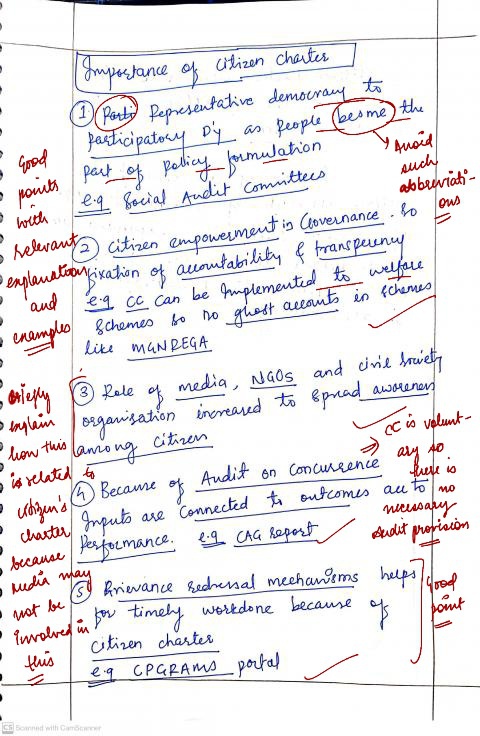 Importance of Citizen Charter
① Parti Representative democracy to
participatory D'y as people besme the
part of policy formulation
e.g Social Audit Committees
Avoid
such
abbreviati-
ons
Good
points
with
relevant
explanation
and
examples
② Citizen empowerment in Governance. So
fixation of accountability & transparency
e.g CC can be implemented to welfare
schemes so no ghost accounts in schemes
like MGNREGA
③ Role of media, NGOs and civil society
organisation increased to spread awareness
among citizen
Briefly
explain
how this
is related to
citizen's
charter
because
media may
not be
involved in
this
④ Because of Audit on concurrence
Inputs are connected to outcomes acc to
Performance. e.g CAG report
CC is volunt-
ary so
there is
no
necessary
audit provision
⑤ Grievance redressal mechanisms helps
for timely workdone because of
citizen charter
e.g CPGRAMS portal
Good
point
CS Scanned with CamScanner